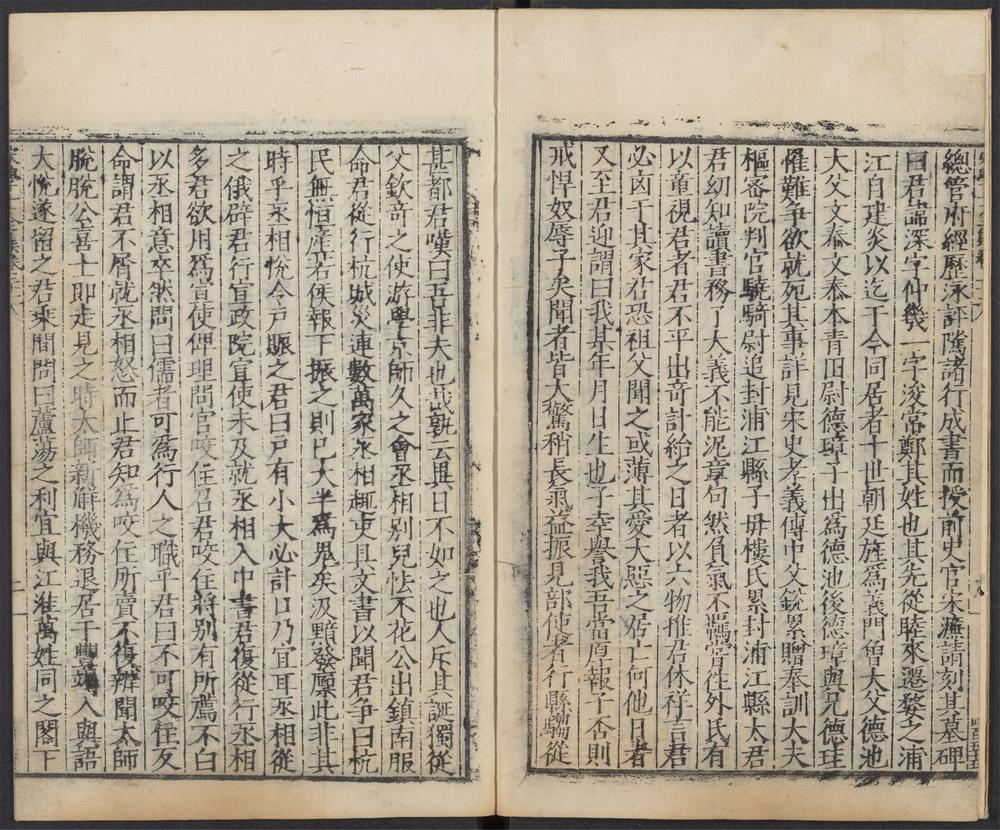 總管府經歷泳評隲諸行成書而授前史官宋濂請刻其墓碑
曰君諱深字仲幾一字浚常鄭其姓也其先從睦來遷婺之浦
江自建炎以迄于今同居者十世朝廷旌爲義門曾大父德池
大父文泰文泰本青田尉德璋子出爲德池後德璋與兄德珪
罹難争欲就死其事詳見宋史孝義傳中父銳累贈奉訓大夫
樞密院判官驍騎尉追封浦江縣子母樓氏累封浦江縣太君
君幼知讀書務了大義不能泥章句然負氣不羈嘗往外氏有
以童視君者君不平出奇計紿之日者以六物推君休祥言君
必凶于其家君恐祖父聞之或薄其愛大惡之居亡何他日者
又至君迎謂曰我某年月日生也子幸譽我吾當厚報子否則
戒悍奴辱子矣聞者皆大驚稍長氣益振見部使者行縣騶從
甚都君嘆曰吾非夫也哉孰云異日不如之也人斥其誕獨從
父欽奇之使游學京師久之會丞相別兒怯不花公出鎮南服
命君從行杭城災連數萬家丞相趣吏具文書以聞君争曰杭
民無恒產若俟報下振之則已大半爲鬼矣汲黯發廩此非其
時乎丞相恱令戶賑之君曰戶有小大必計口乃宜耳丞相從
之俄辟君行宣政院宣使未及就丞相入中書君復從行丞相
多君欲用爲宣使俾理問官咬住召君咬住將别有所薦不白
以丞相意卒然問曰儒者可爲行人之職乎君曰不可咬住反
命謂君不屑就丞相怒而止君知爲咬住所賣不復辨聞太師
脫脫公喜士即走見之時太師新解機務退居于與語
大恱遂留之君乘間問曰蘆蕩之利宜與江淮萬姓同之閣下